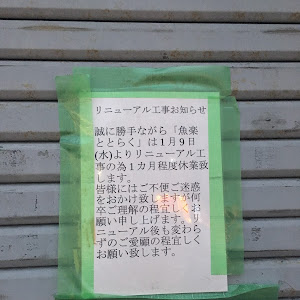 リニューアル工事お知らせ
誠に勝手ながら「魚楽
ととらく」は1月9日
(水)よりリニューアル工
事の為1カ月程度休業致
します。
皆様にはご不便ご迷惑
をおかけ致しますが何
卒ご理解の程宜しくお
願い申し上げます。リ
ニューアル後も変わら
ずのご愛顧の程宜しく
お願い致します。